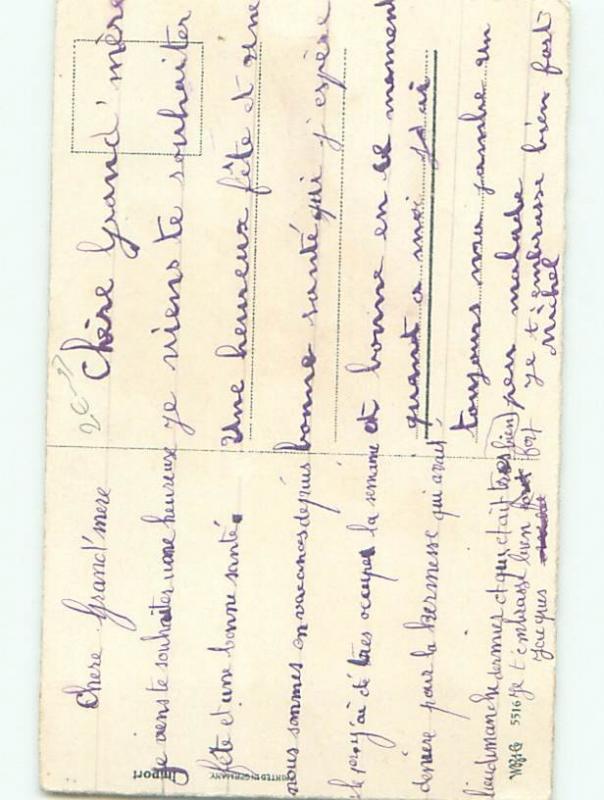 chere Grand'mere
je viens te souhaiter une heureuse
fête et une bonne santé.
nous sommes en vacances depuis
j'ai été très occupé la semaine
derniere pour la kermesse qui avait
lieu dimanche dernier et qui était très bien
je t'embrasse bien fort
Jacques
2e
Chère Grand' mère
je viens te souhaiter
Une heureux fête et une
bonne santé qui j'espère
et bonne en ce moment
quant a moi j'ai
toujours ma jambe un
peu malade
je t'embrasse bien fort
Michel
Import
PRINTED IN GERMANY
5516